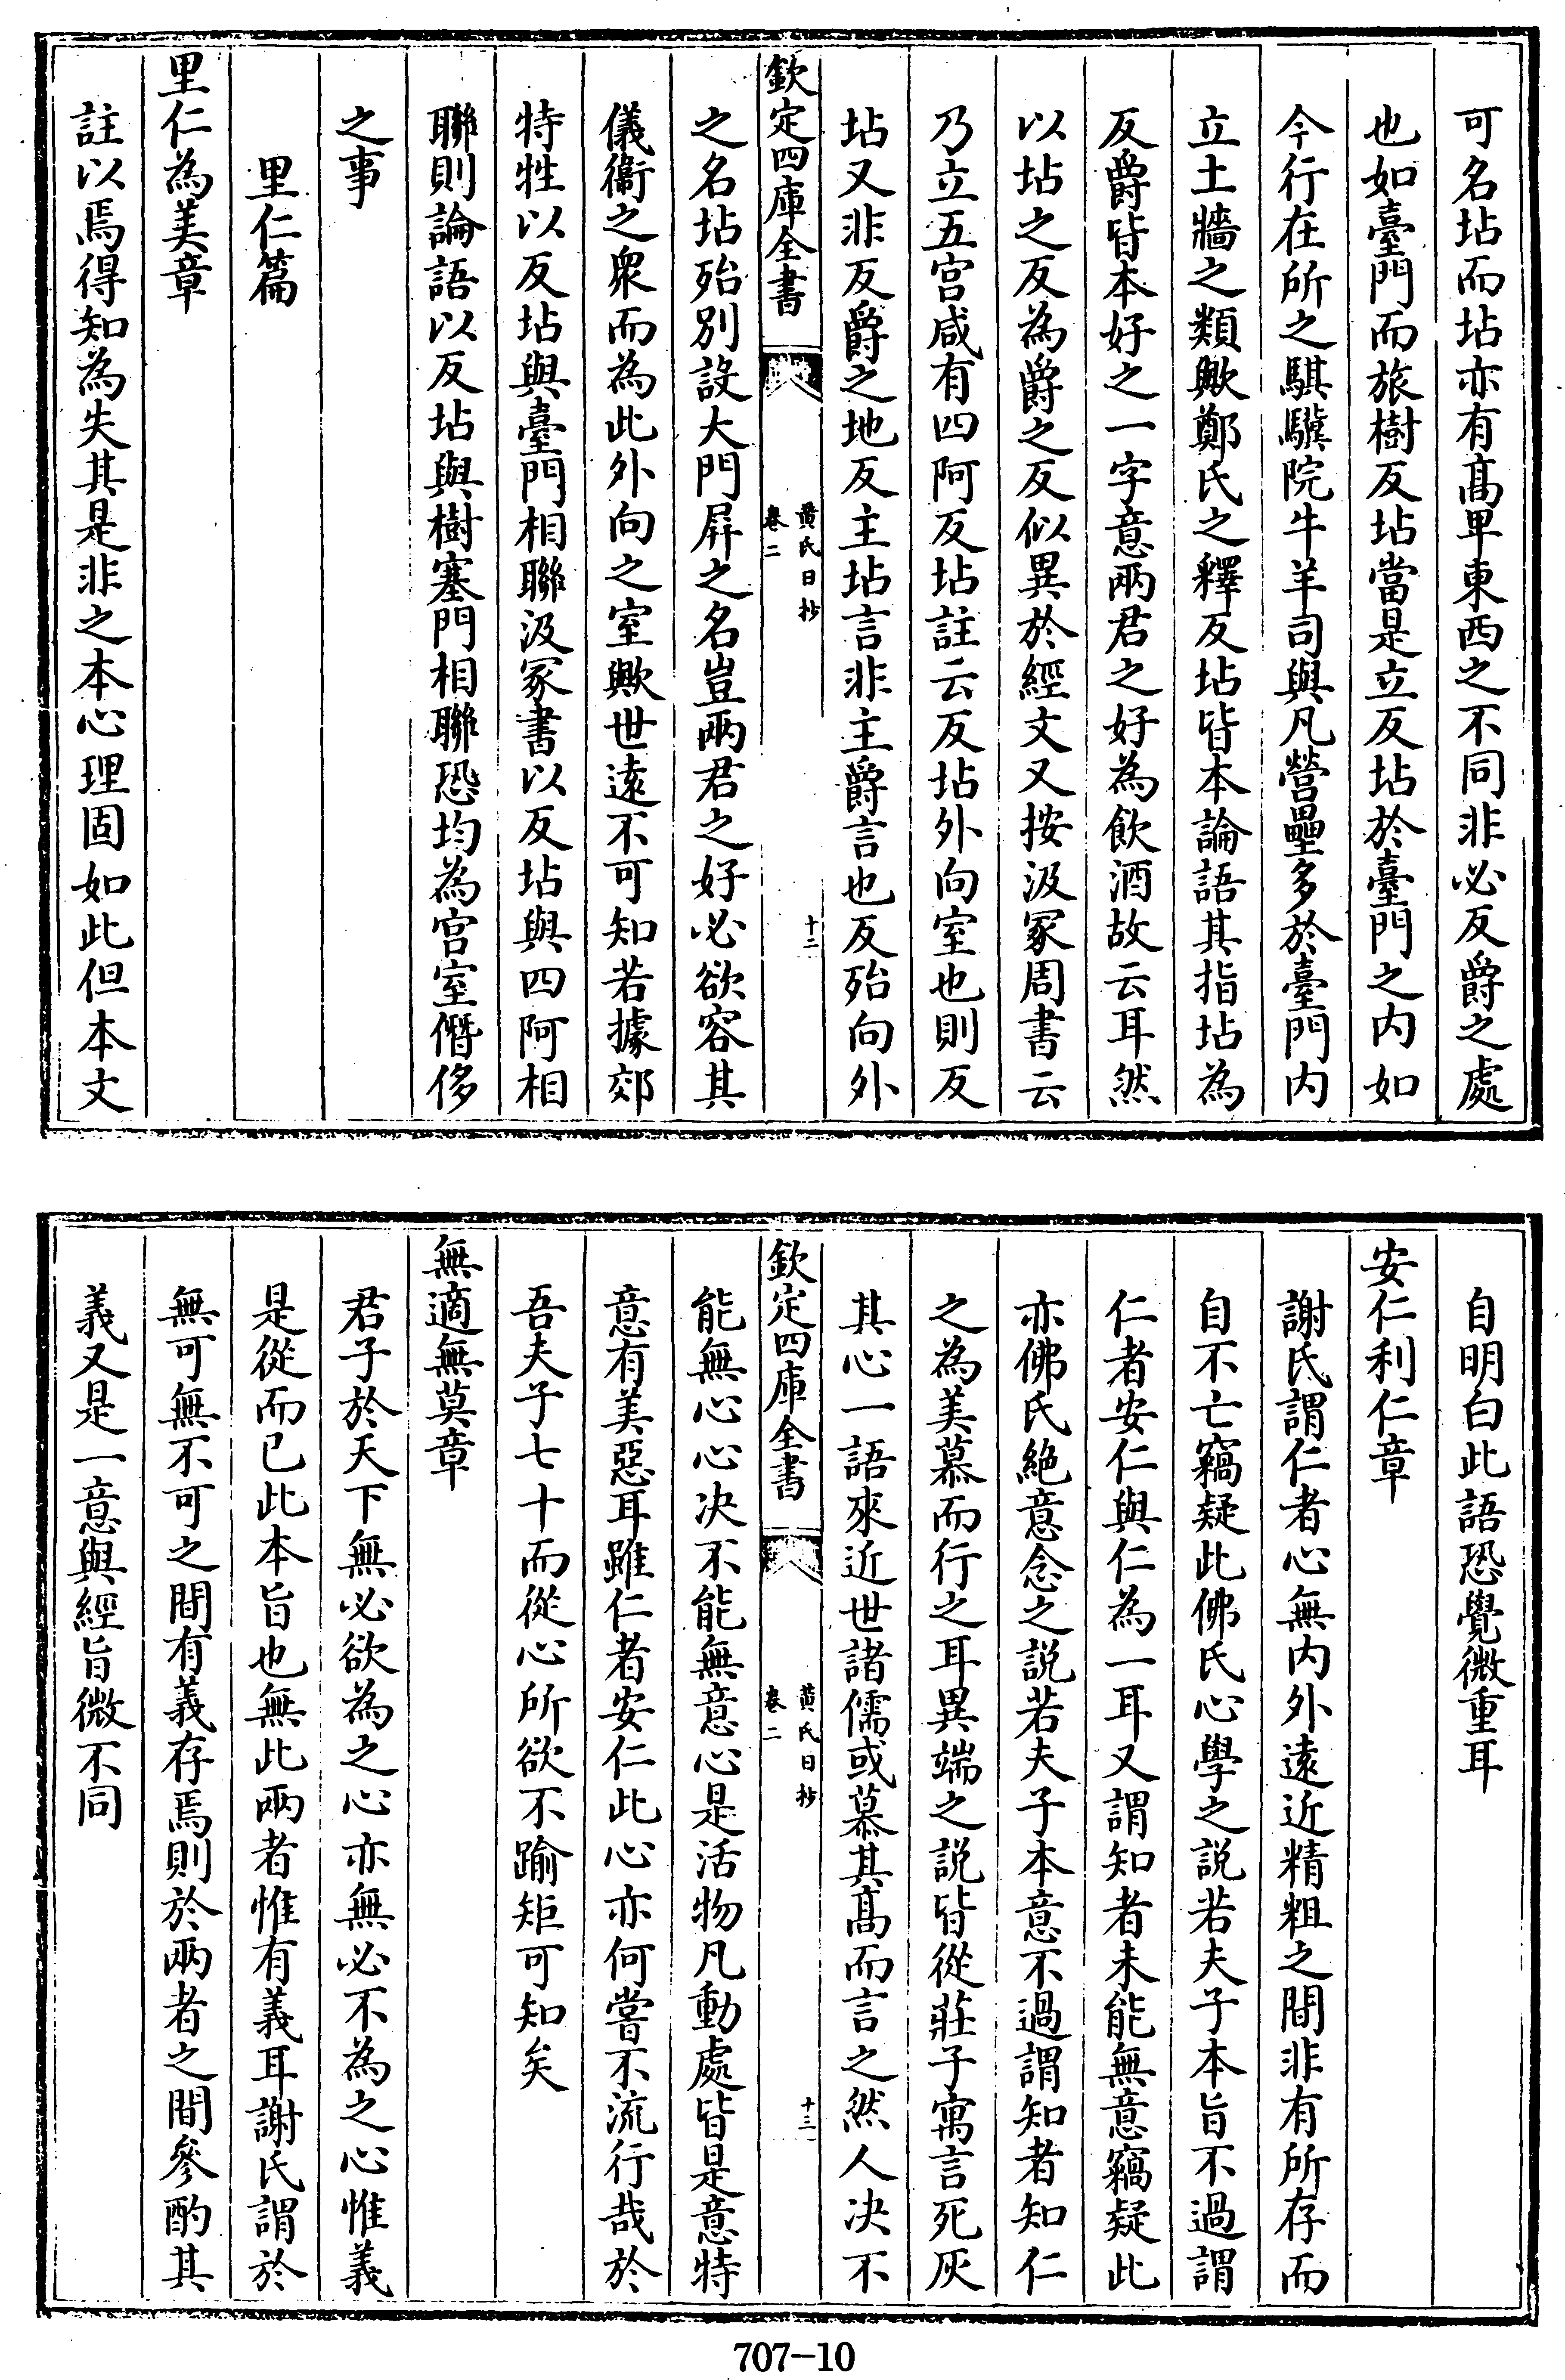 可名坫而坫亦有髙卑東西之不同非必反爵之處
也如臺門而旅樹反坫當是立反坫於臺門之内如
今行在所之騏驥院牛羊司與凡營壘多於臺門内
立土牆之類歟鄭氏之釋反坫皆本論語其指坫為
反爵皆本好之一字意兩君之好為飲酒故云耳然
以坫之反為爵之反似異於經文又按汲冢周書云
乃立五宫咸有四阿反坫註云反坫外向室也則反
坫又非反爵之地反主坫言非主爵言也反殆向外
欽定四庫全書
黄氏日抄
卷二
十二
之名坫殆别設大門屏之名豈兩君之好必欲容其
儀衞之衆而為此外向之室歟世逺不可知若據郊
特牲以反坫與臺門相聯汲冢書以反坫與四阿相
聯則論語以反坫與樹塞門相聯恐均為宫室僭侈
之事
里仁篇
里仁為美章
註以焉得知為失其是非之本心理固如此但本文
自明白此語恐覺微重耳
安仁利仁章
謝氏謂仁者心無内外逺近精粗之間非有所存而
自不亡竊疑此佛氏心學之説若夫子本旨不過謂
仁者安仁與仁為一耳又謂知者未能無意竊疑此
亦佛氏絶意念之説若夫子本意不過謂知者知仁
之為美慕而行之耳異端之説皆從莊子寓言死灰
其心一語來近世諸儒或慕其髙而言之然人决不
欽定四庫全書
黄氏日抄
卷二
十三
能無心心决不能無意心是活物凡動處皆是意特
意有美惡耳雖仁者安仁此心亦何嘗不流行哉於
吾夫子七十而從心所欲不踰矩可知矣
無適無莫章
君子於天下無必欲為之心亦無必不為之心惟義
是從而已此本旨也無此兩者惟有義耳謝氏謂於
無可無不可之間有義存焉則於兩者之間參酌其
義又是一意與經旨微不同
707-10